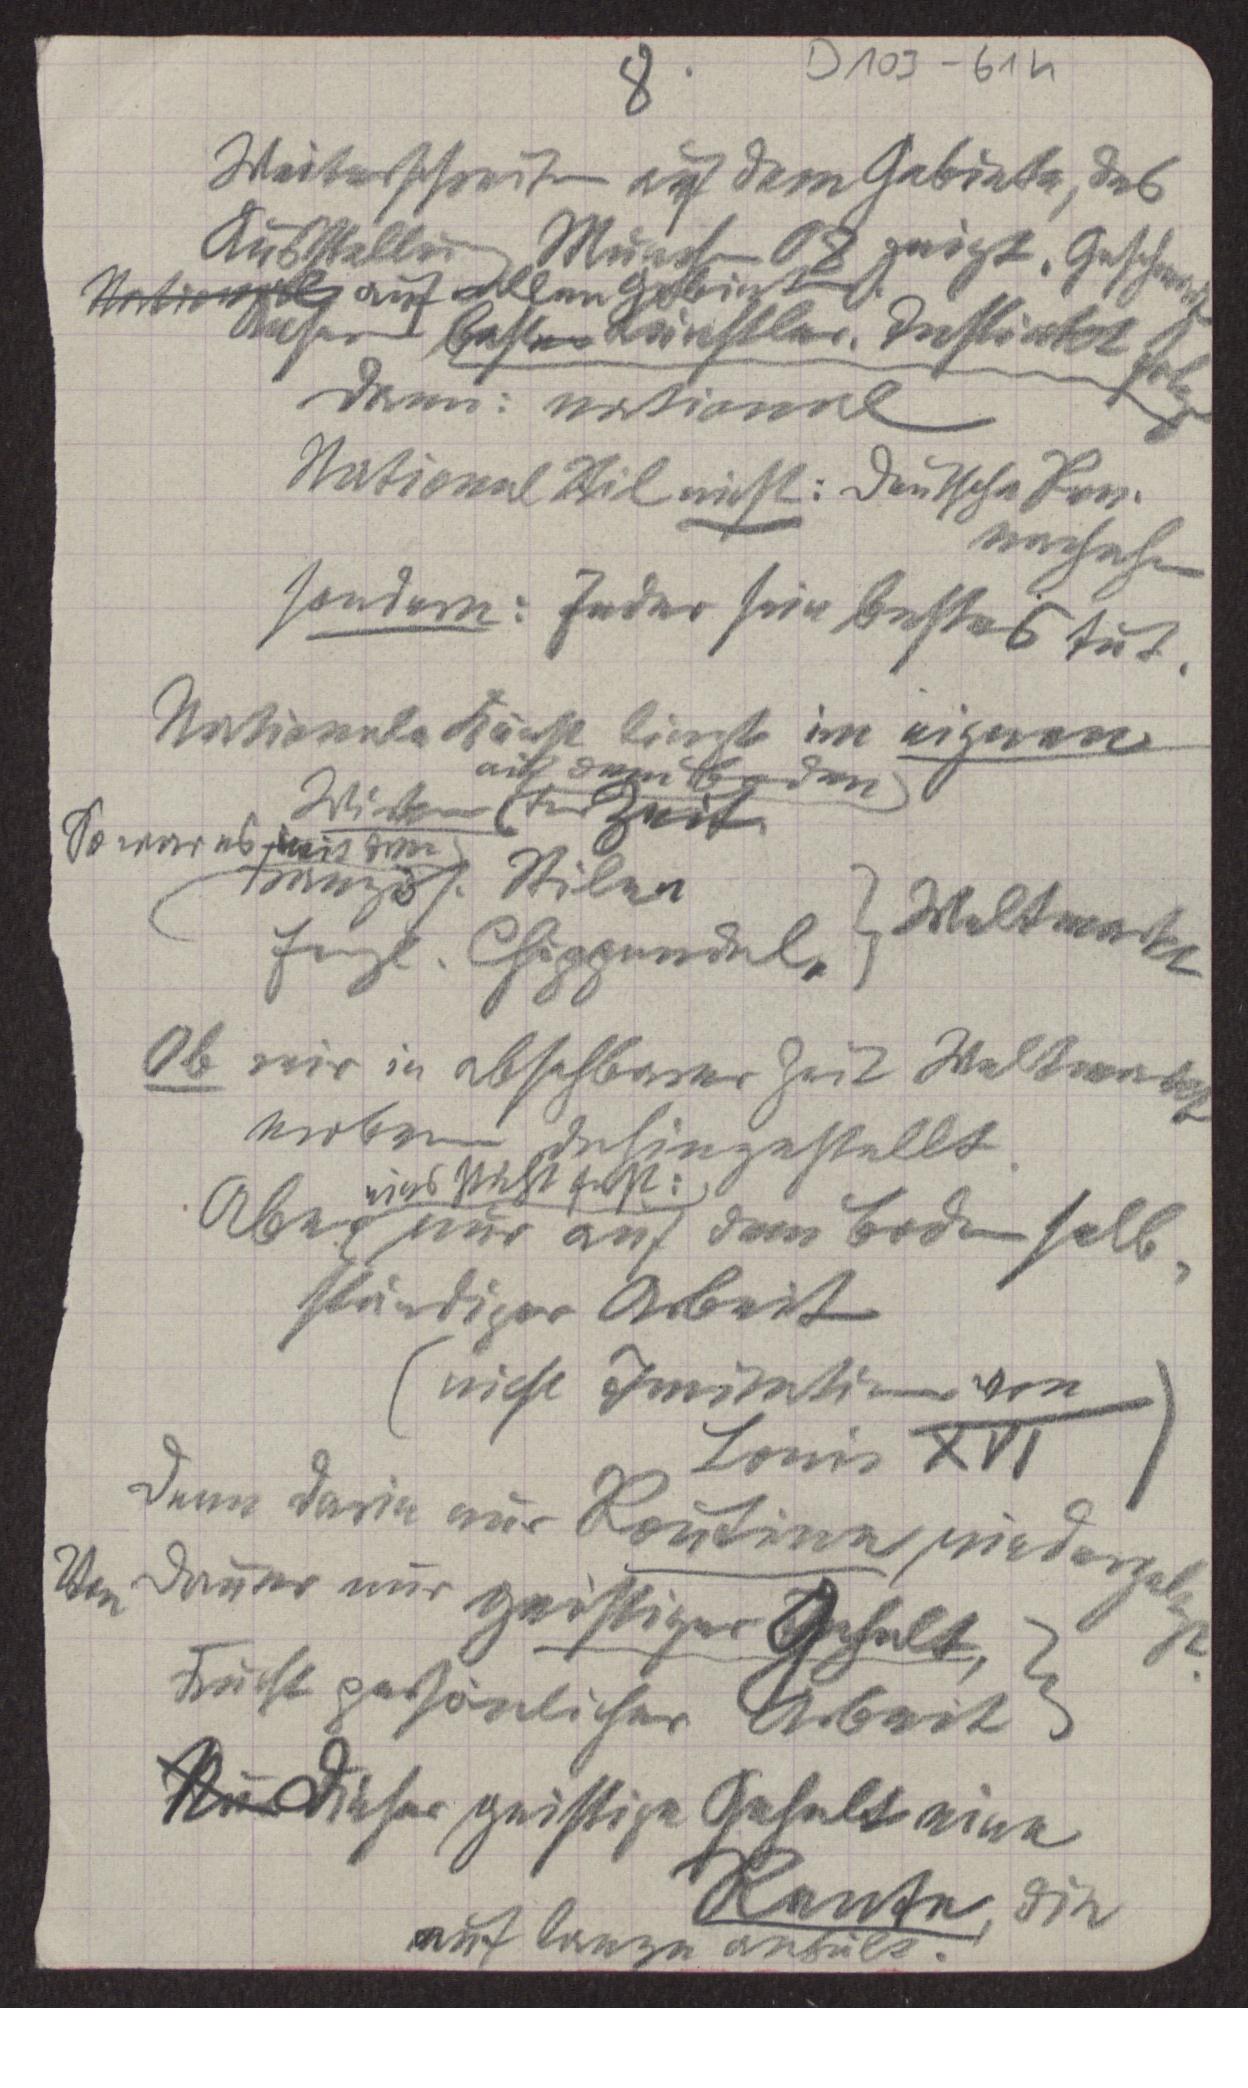 8.
D 103 - 614
Weiterschreiten auf dem Gebiete, das
Ausstellung München 08 zeigt. Geschmack
auf allen Gebieten.
Unsere besten Künstler. Instinkt
Dann: national
National Stil nicht: Deutsche Ren.
nachahmen
sondern: Jeder sein bestes tut.
Nationale Kunst liegt im eigenen
auf dem Boden
der Zeit.
So war es mit den
französ. Stilen
Engl. Chippendale,
} Weltmarkt
Ob wir in absehbarer Zeit Weltmarkt
erobern dahingestellt.
eins steht fest:
Aber nur auf dem Boden selb-
ständiger Arbeit
(nicht Imitation von
Louis XVI)
Denn darin nur Routine niedergelegt.
Von Dauer nur geistiger Gehalt,
Frucht persönlicher Arbeit }
Nur Dieser geistige Gehalt eine
Rente, die
auf lange anhält.